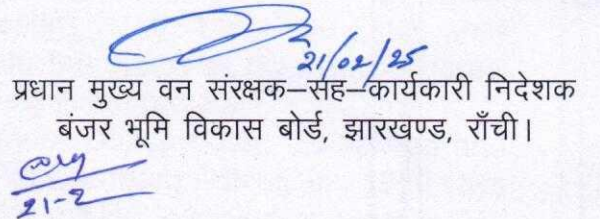 21/02/25
प्रधान मुख्य वन संरक्षक–सह–कार्यकारी निदेशक
बंजर भूमि विकास बोर्ड, झारखण्ड, राँची।
21-2